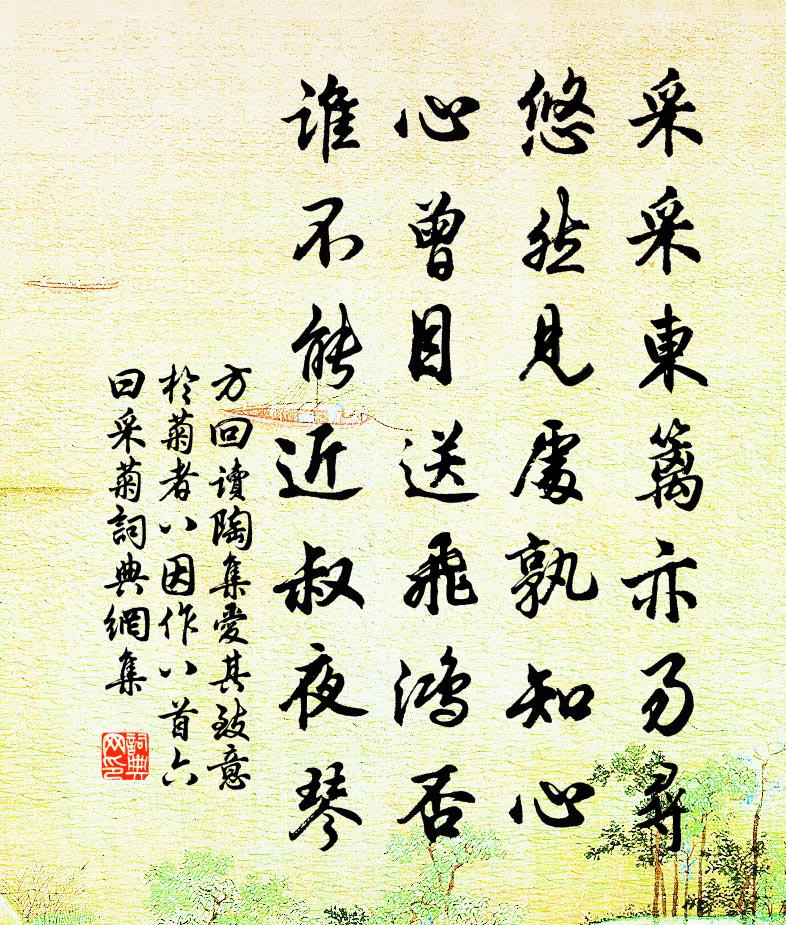 采采東籬亦易尋
悠然見處孰知心
心曾目送飛鴻否
誰不能近叔夜琴
方回讀陶集愛其致意
於菊者八因作八首六
曰采菊詞典網集
詞典網印